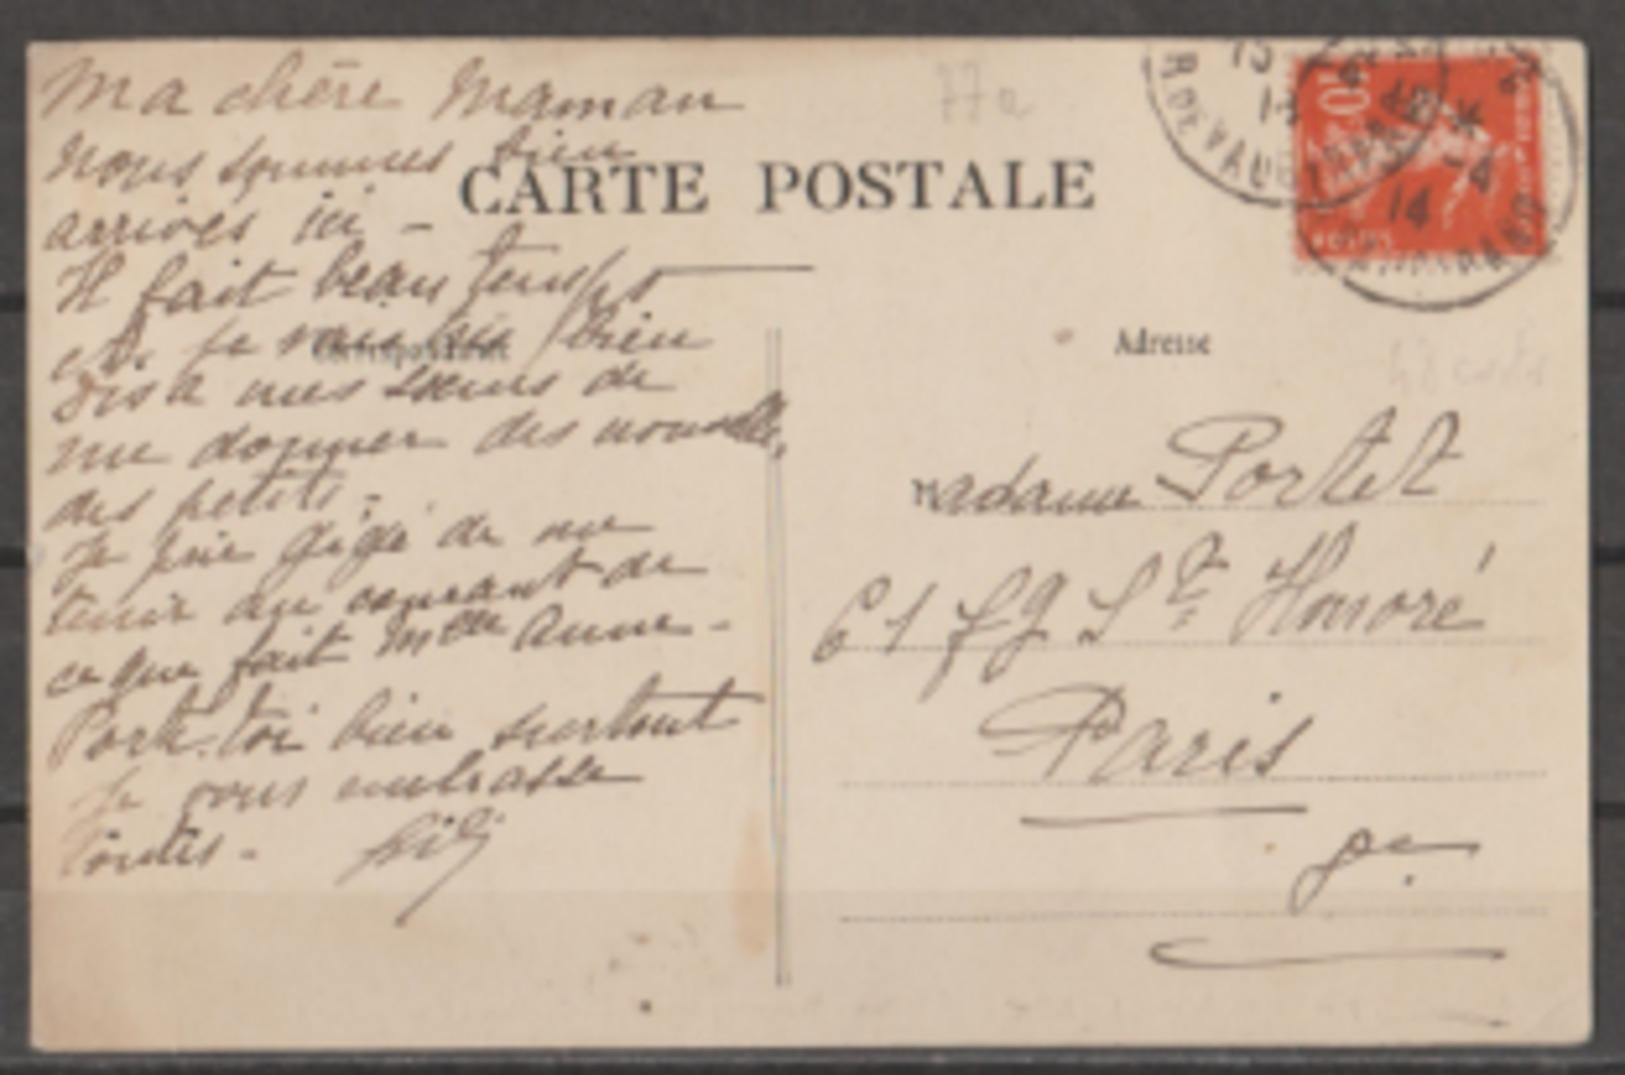 Ma chère Maman
nous sommes bien
arrivés ici -
Il fait beau temps
et je vais bien
Dis à mes sœurs de
me donner des nouvelles
des petits.
Je prie Gigi de me
tenir au courant de
ce que fait Melle Anne -
Porte-toi bien surtout
Je vous embrasse
toutes -
77e
CARTE POSTALE
Correspondance
Adresse
Madame Portet
61 fg St Honoré
Paris
R DE VAUGIRARD
10
POSTES
-4
14